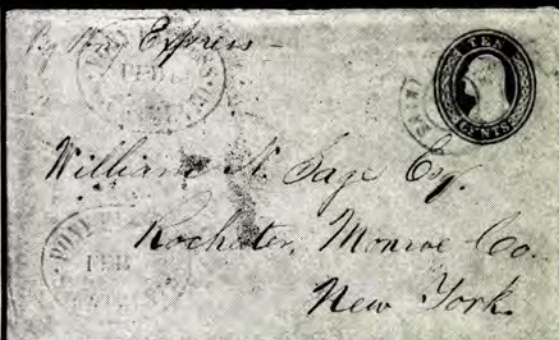 By Pony Express -
PONY EXPRESS
FEB
TEN
CENTS
William N. Sage Esq.
Rochester, Monroe Co.
New York.
PONY
FEB